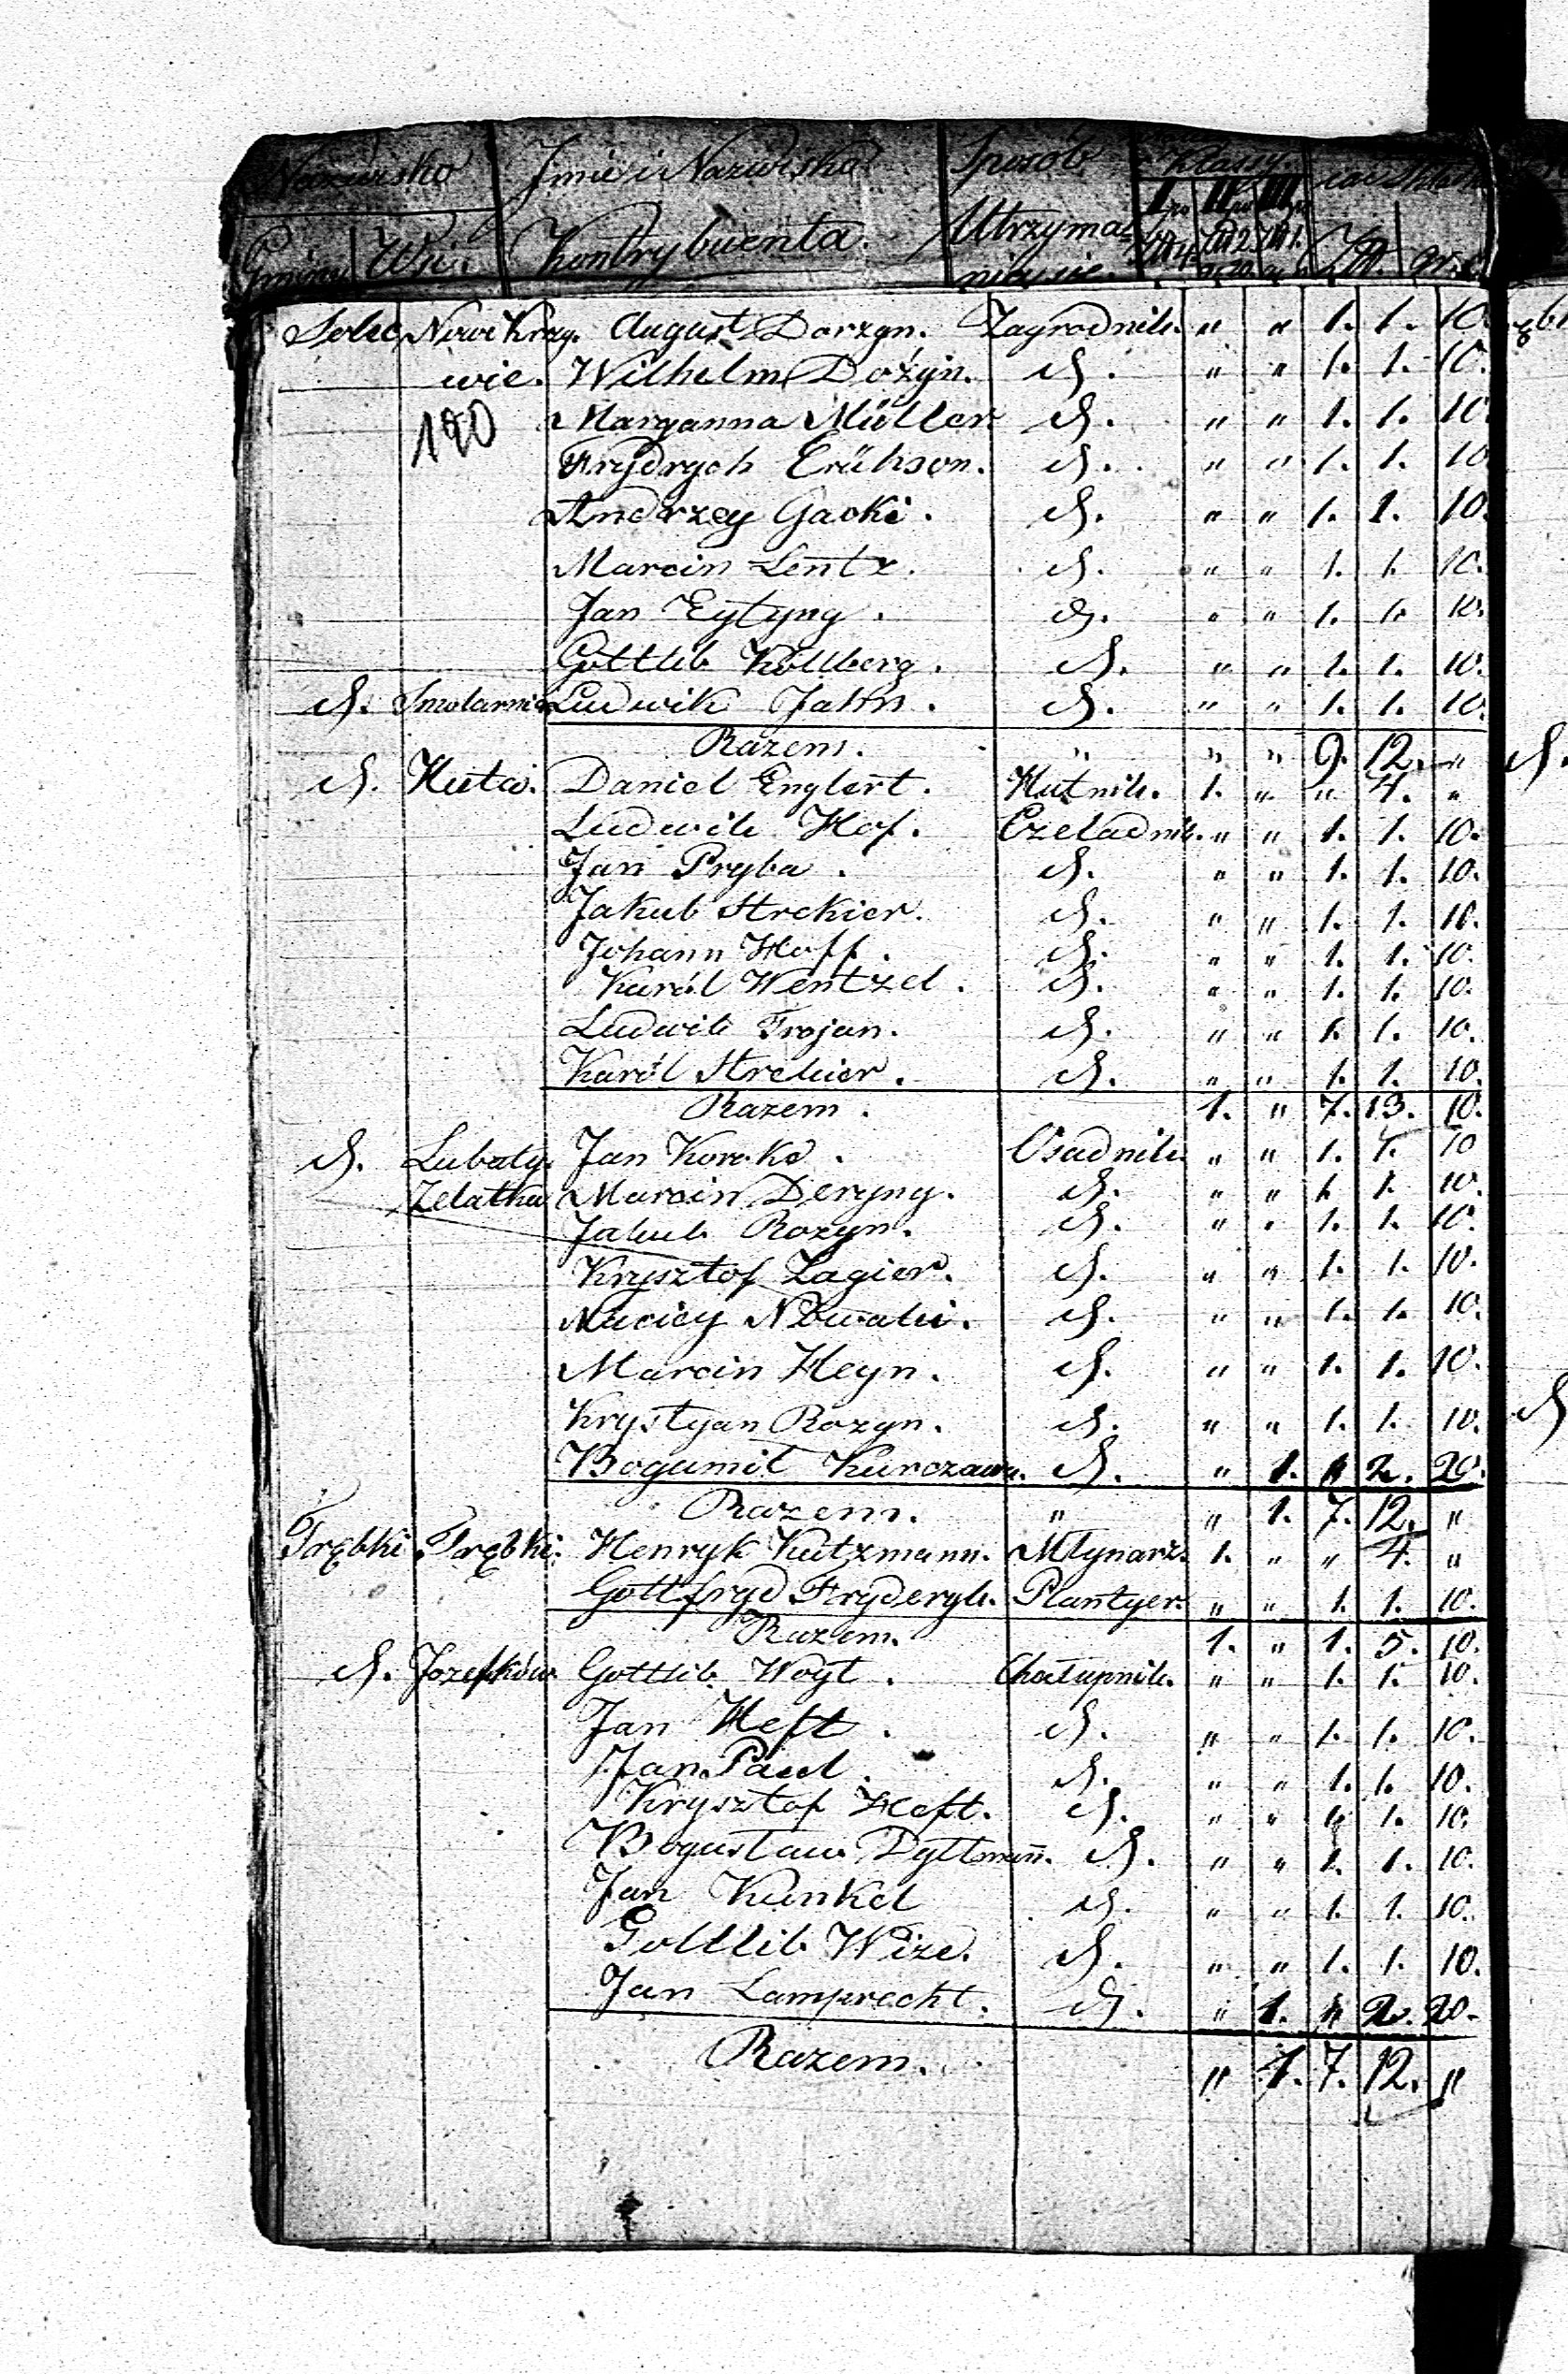 Nazwisko Jmie i Nazwisko Sposób Klassy
Gminy Wsi. Kontrybuenta. Utrzyma- I II III
nia się. Złl4 Złl2 Złl1 Złl. gr.
Solec Nowe Krzy. August Dorzyn. Zagrodnik. " " 1. 1. 10.
wie. Wilhelm Dożyn. d. " " 1. 1. 10.
190 Maryanna Müller d. " " 1. 1. 10.
Frydrych Erükson. d. " " 1. 1. 10.
Andrzey Gacki. d. " " 1. 1. 10.
Marcin Lentz. d. " " 1. 1. 10.
Jan Eytyng. d. " " 1. 1. 10.
Gottlib Kollberg. d. " " 1. 1. 10.
d. Smolarnia Ludwik Jahn. d. " " 1. 1. 10.
Razem. " " " 9. 12. "
d. Huta. Daniel Englert. Hutnik. 1. " " 4. "
Ludwik Hof. Czeladnik. " " 1. 1. 10.
Jan Pryba. d. " " 1. 1. 10.
Jakub Strekier. d. " " 1. 1. 10.
Johann Hoff. d. " " 1. 1. 10.
Karól Wentzel. d. " " 1. 1. 10.
Ludwik Trojan. d. " " 1. 1. 10.
Karól Strekier. d. " " 1. 1. 10.
Razem. 1. " 7. 13. 10.
d. Lubaty. Jan Osadnik. " " 1. 1. 10
Zelatka Marcin Deryng. d. " " 1. 1. 10.
Jakub Rozyn. d. " " 1. 1. 10.
Krysztof Zagier. d. " " 1. 1. 10.
Maciey Nowaki. d. " " 1. 1. 10.
Marcin Heyn. d. " " 1. 1. 10.
Krystyan Rozyn. d. " " 1. 1. 10.
Bogumił Kurczawa. d. " 1. " 2. 20.
Razem. " " 1. 7. 12. "
Trębki Trębki. Henryk Kutzmann. Młynarz. 1. " " 4. "
Gottfryd Fryderyk. Plantyer. " " 1. 1. 10.
Razem. 1. " 1. 5. 10.
d. Jozefków Gottlib Woyt. Chałupnik. " " 1. 1. 10.
Jan Heft. d. " " 1. 1. 10.
Jan Paul. d. " " 1. 1. 10.
Krysztof Heft. d. " " 1. 1. 10.
Bogusław Dyttmañ. d. " " 1. 1. 10.
Jan Kunkel d. " " 1. 1. 10.
Gottlib Wize. d. " " 1. 1. 10.
Jan Lamprecht. d. " 1. " 2. 20.
Razem. " 1. 7. 12. "